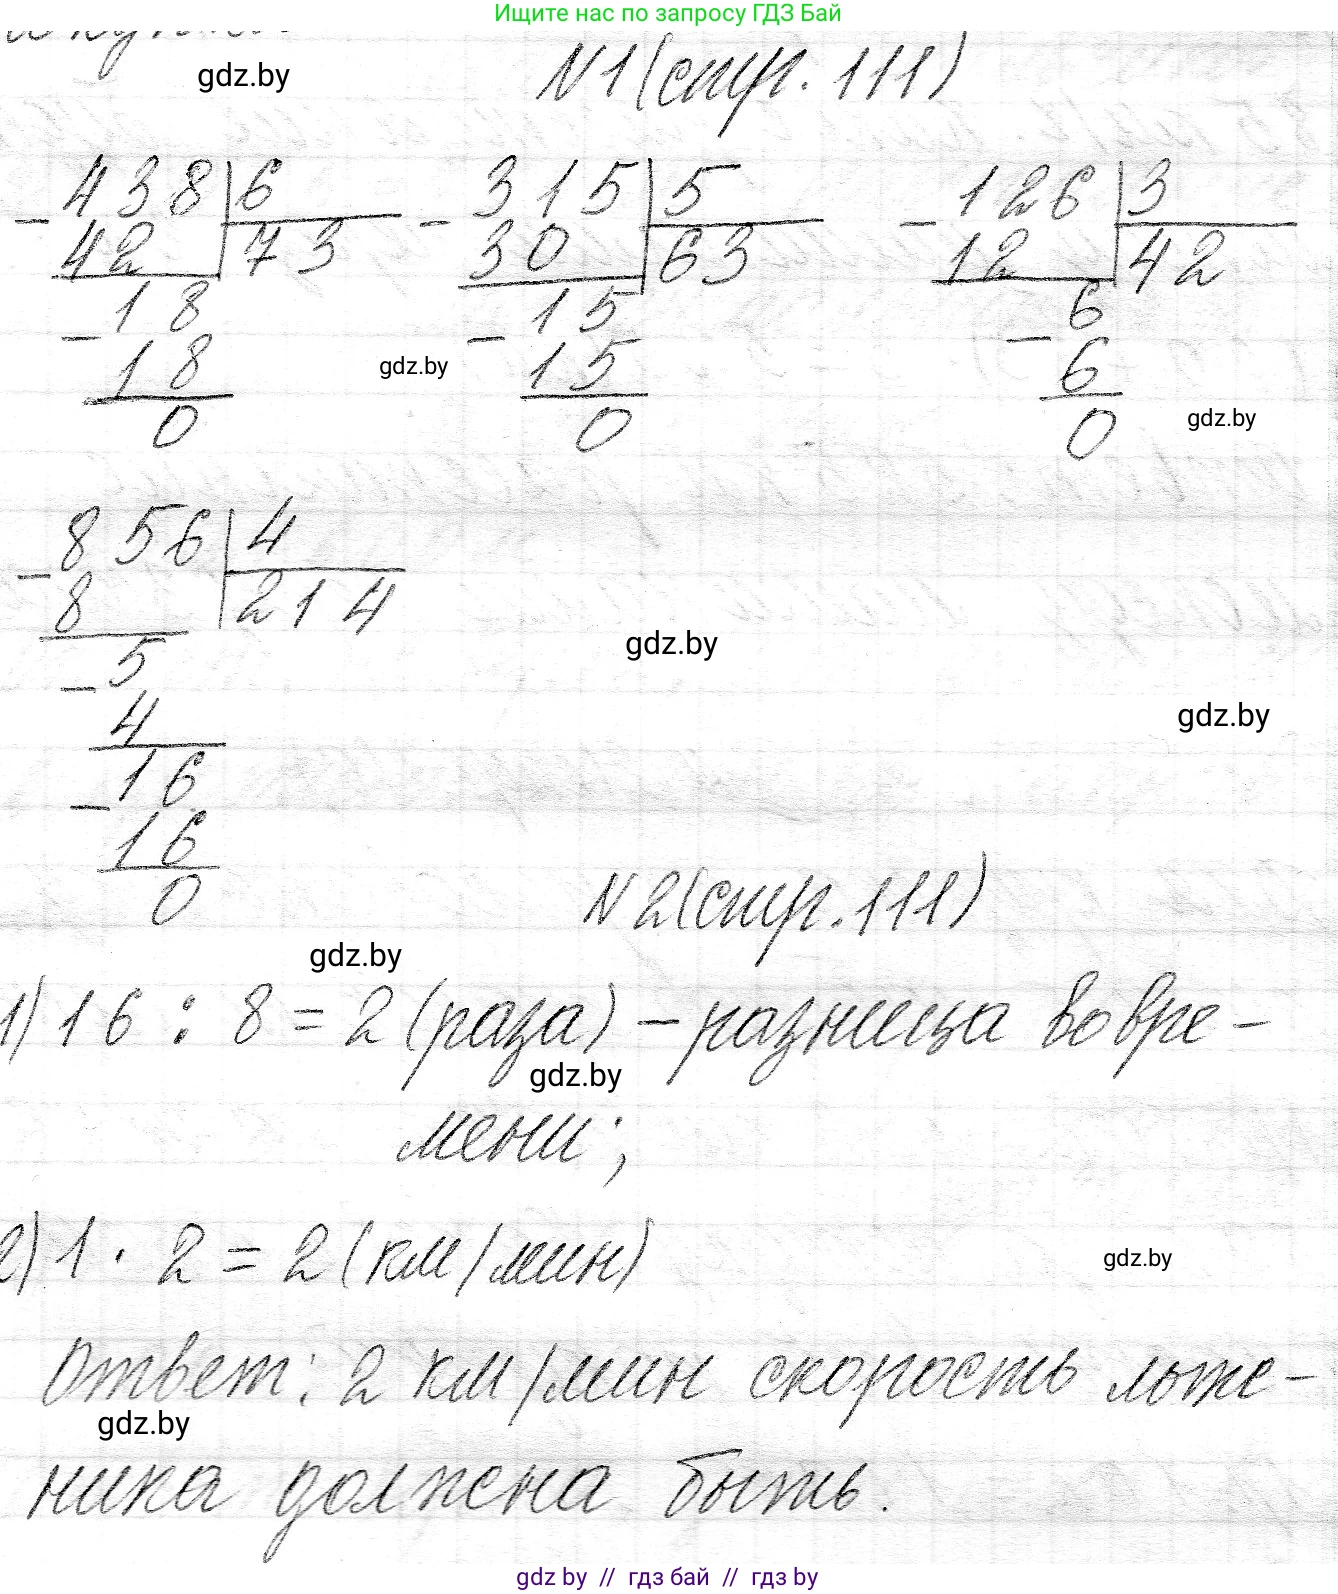 Ищите нас по запросу ГДЗ Бай
gdz.by
N1(стр. 111)
- 438 | 6 - 315 | 5 - 126 | 3
42 73 30 63 12 42
- 18 - 15 - 6
18 gdz.by 15 6
0 0 0 gdz.by
- 856 | 4
8 214
- 5 gdz.by
4 gdz.by
- 16
16
0 N2(стр. 111)
gdz.by
1) 16 : 8 = 2 (раза) – разница во вре-
gdz.by
мени;
2) 1 · 2 = 2 (км/мин)
gdz.by
Ответ: 2 км/мин скорость лыже-
gdz.by
ника должена быть.
gdz by // гдз бай // гдз by